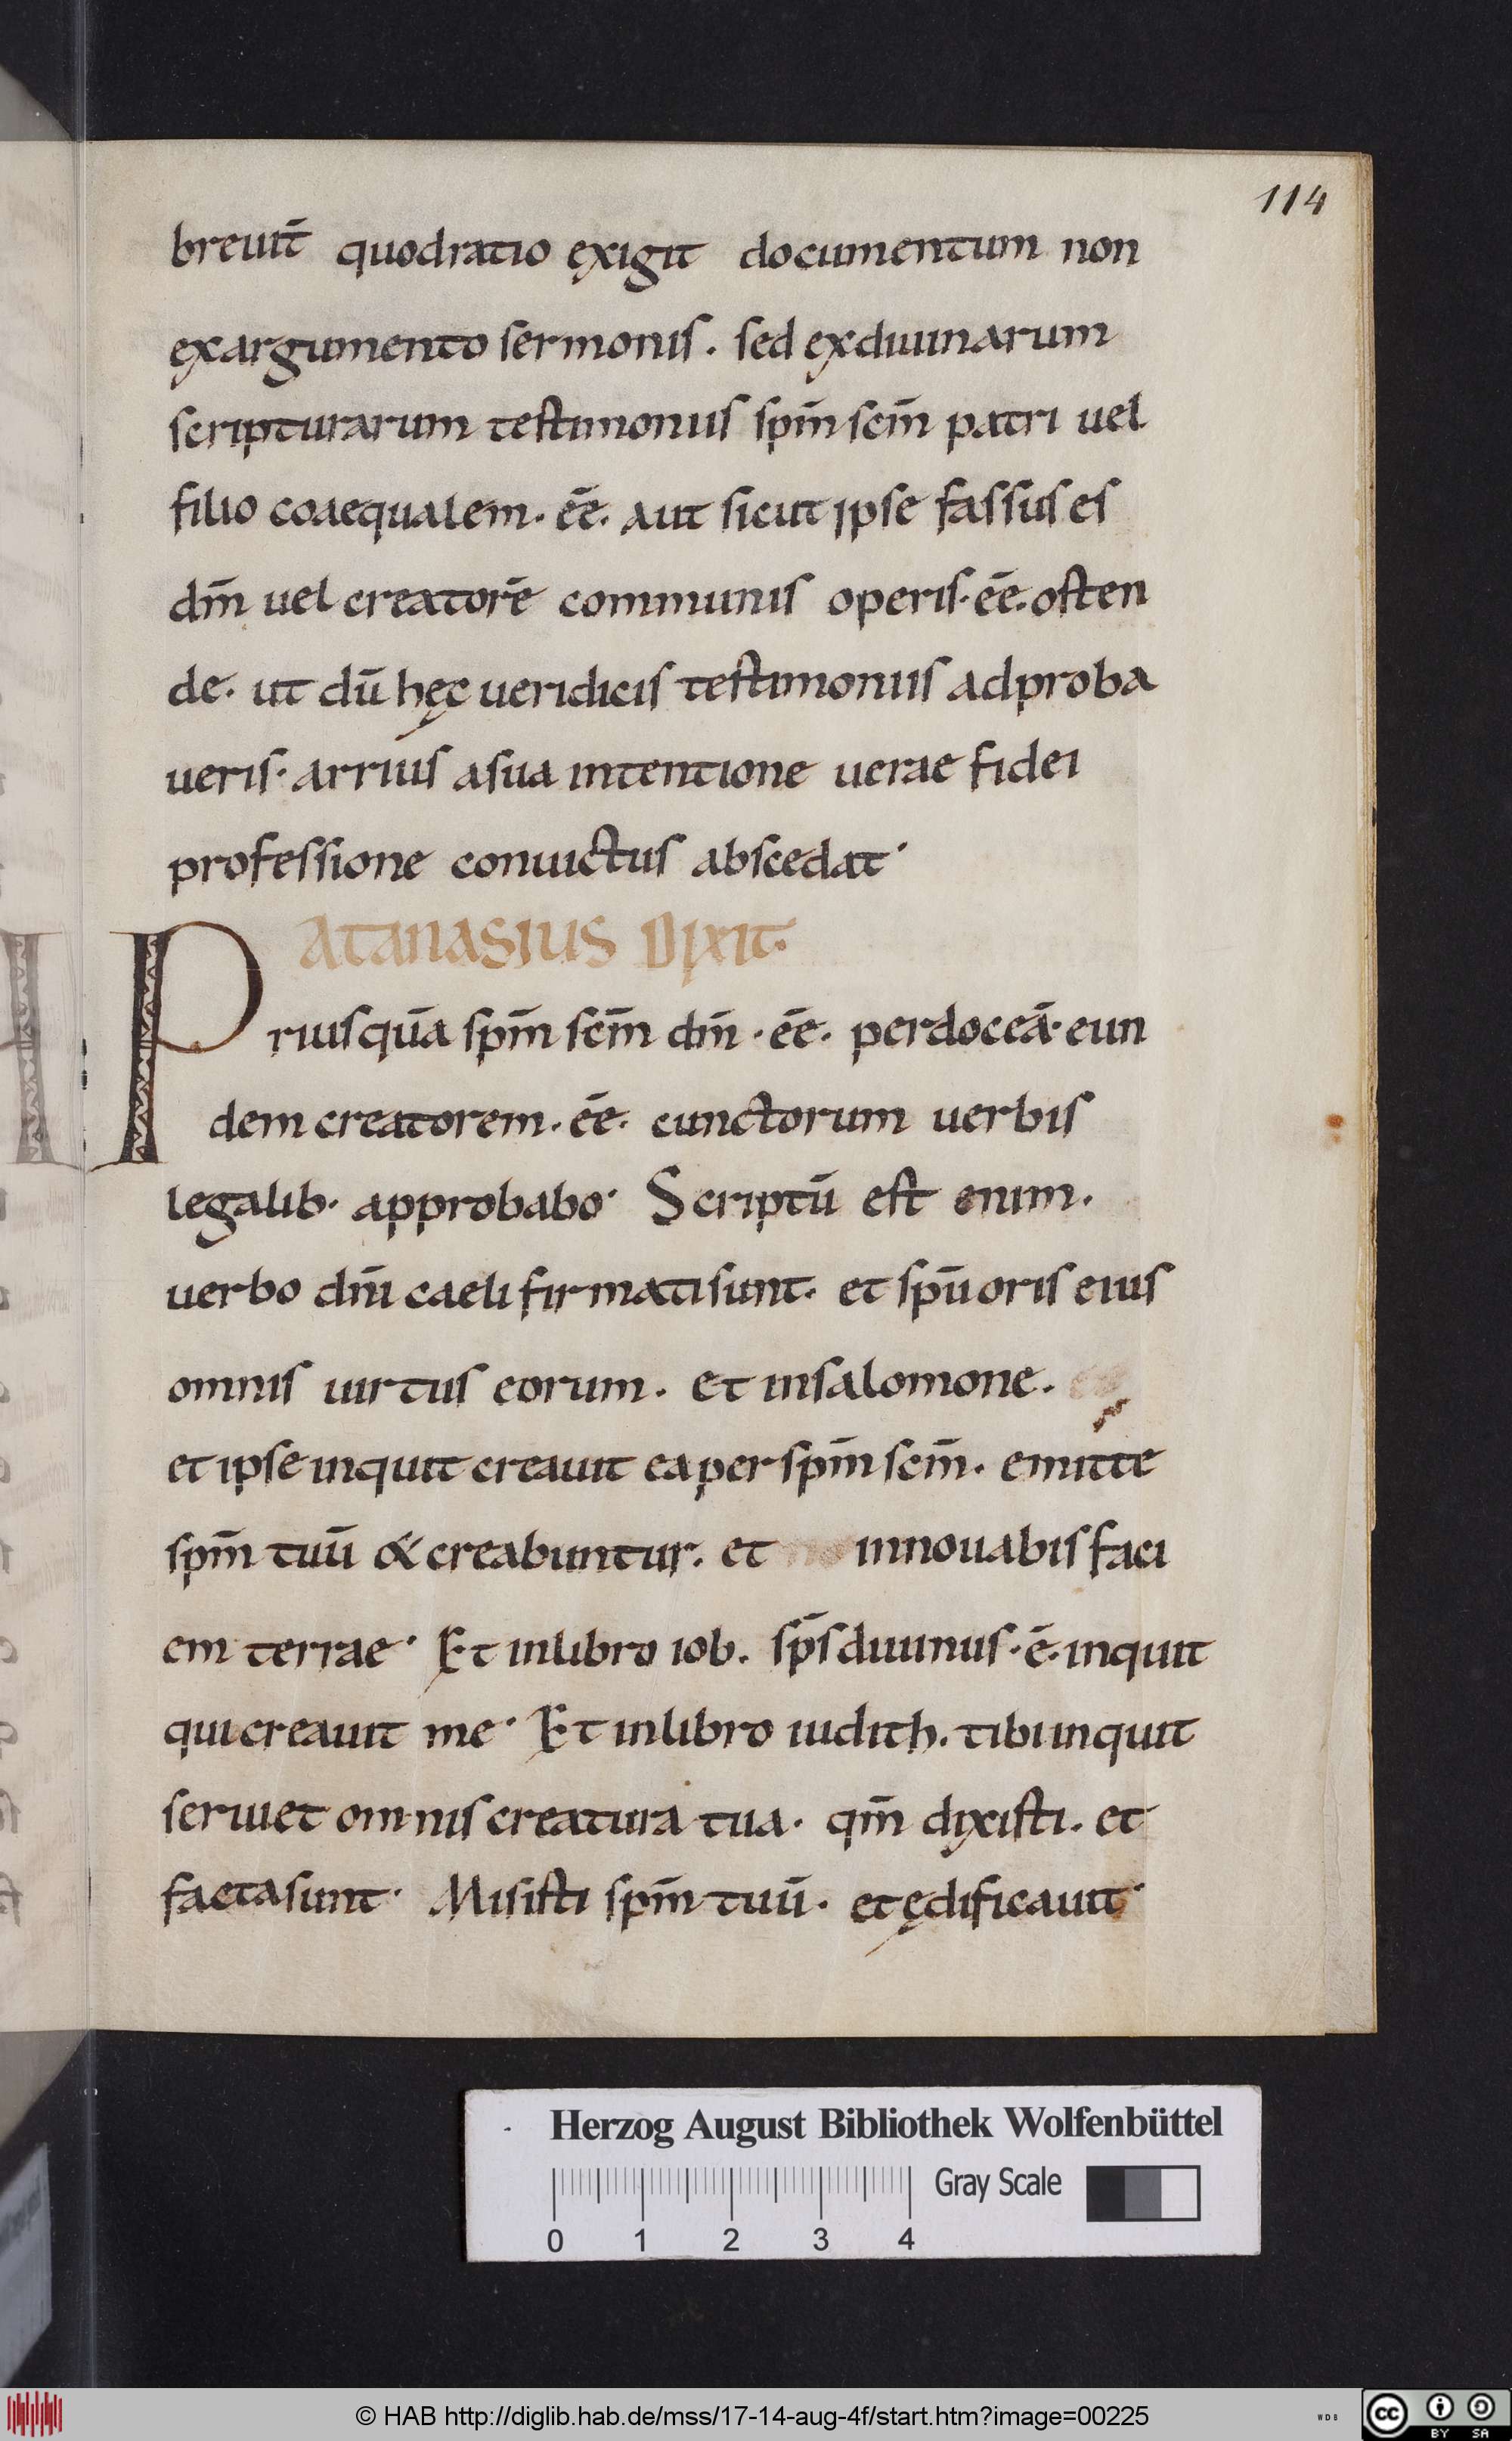 114
breuit̄ quodratio exigit documentum non
exargumento sermonis. sed exdiuinarum
scripturarum testimoniis spm̄ scm̄ patri uel
filio coaequalem. ēē. aut sicut ipse fassus es
dm̄ uel creatorē communis operis. ēē. osten
de. ut dū hęc ueridicis testimoniis adproba
ueris. arrius asua intentione uerae fidei
professione conuictus abscedat.
ATANASIUS DIXIT.
Priusquā spm̄ scm̄ dm̄. ēē. perdoceā. eun
dem creatorem. ēē. cunctorum uerbis
legalib. approbabo. Scriptū est enim.
uerbo dn̄i caeli firmatisunt. et spū oris eius
omnis uirtus eorum. et insalomone.
et ipse inquit creauit eaper spm̄ scm̄. emitte
spm̄ tuū & creabuntur. et innouabis faci
em terrae. Et inlibro iob. sps̄ diuinus. ē. inquit
qui creauit me. Et inlibro iudith. tibi inquit
seruiet omnis creatura tua. qm̄ dixisti. et
factasunt. Misisti spm̄ tuū. et ędificauit.
Herzog August Bibliothek Wolfenbüttel
Gray Scale
0 1 2 3 4
© HAB http://diglib.hab.de/mss/17-14-aug-4f/start.htm?image=00225
WDB
cc BY SA